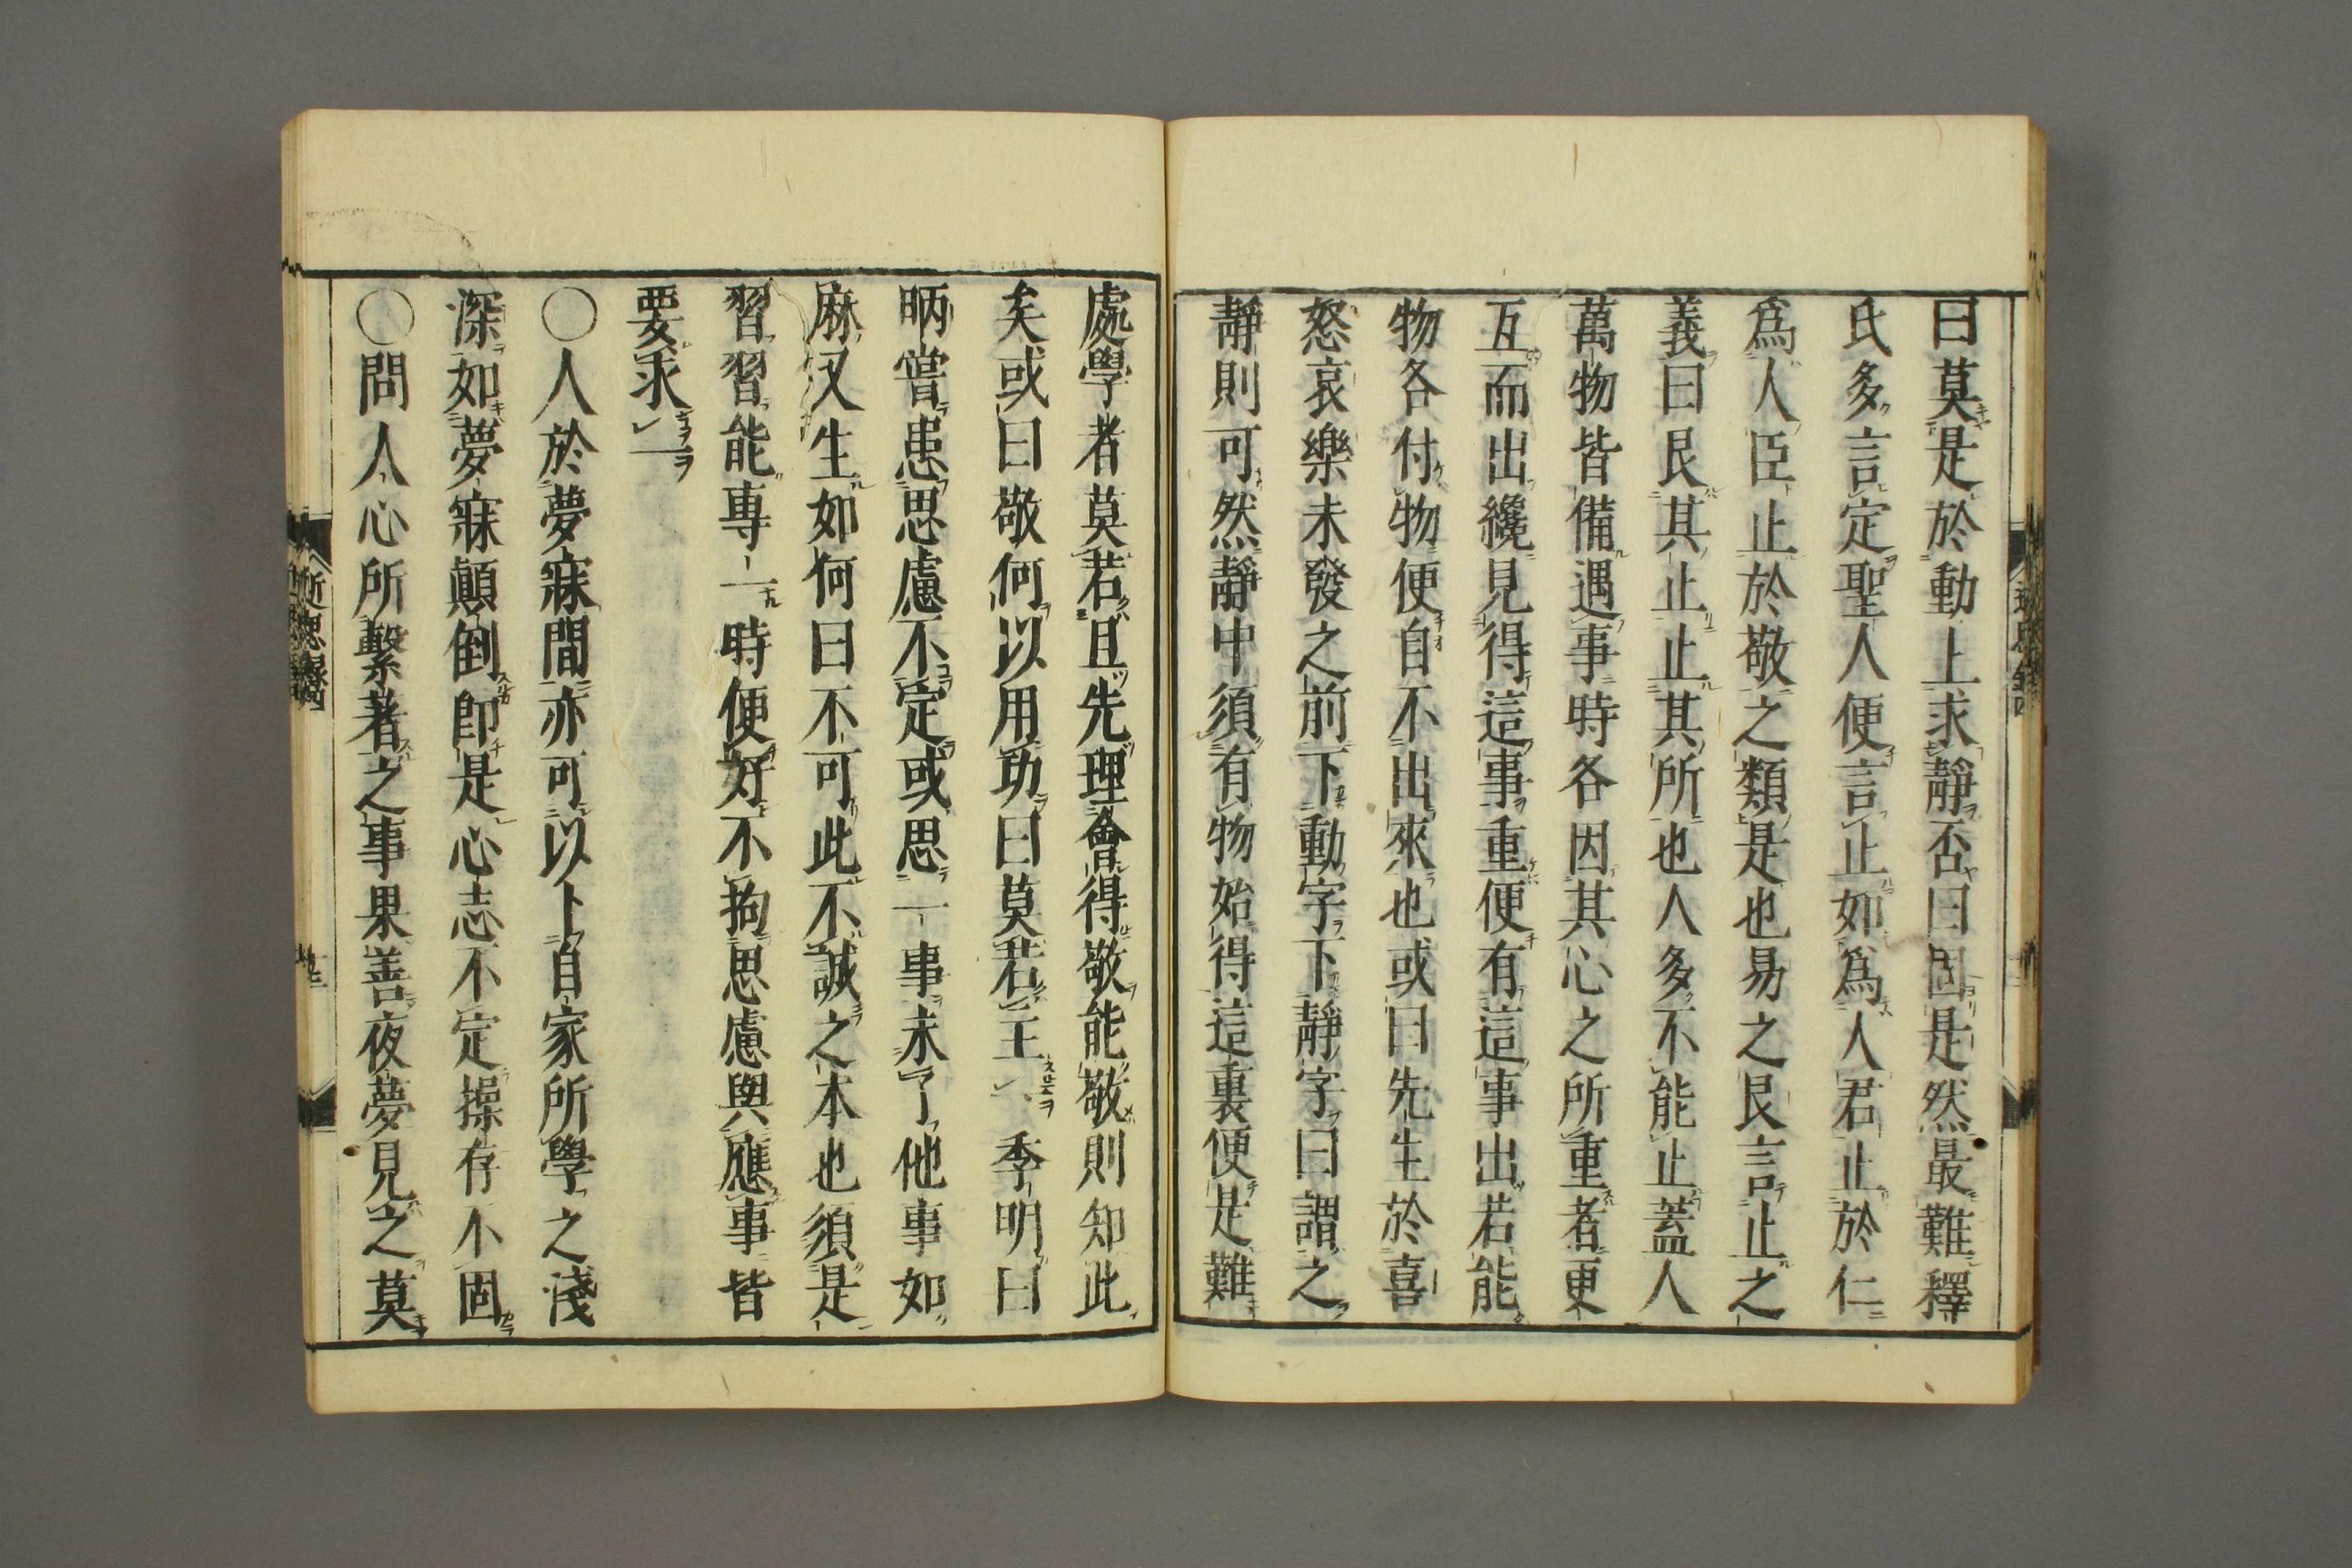 曰莫是於動上求靜否曰固是然最難釋
氏多言定聖人便言止如爲人君止於仁
爲人臣止於敬之類是也易之艮言止之
義曰艮其止止其所也人多不能止蓋人
萬物皆備遇事時各因其心之所重者更
互而出纔見得這事重便有這事出若能
物各付物便自不出來也或曰先生於喜
怒哀樂未發之前下動字下靜字曰謂之
靜則可然靜中須有物始得這裏便是難
處學者莫若且先理會得敬能敬則知此
矣或曰敬何以用功曰莫若主一季明曰
昞嘗患思慮不定或思一事未了他事如
麻又生如何曰不可此不誠之本也須是
習習能專一時便好不拘思慮與應事皆
要求一
○人於夢寐間亦可以卜自家所學之淺
深如夢寐顚倒卽是心志不定操存不固
○問人心所繫著之事果善夜夢見之莫
近思錄四